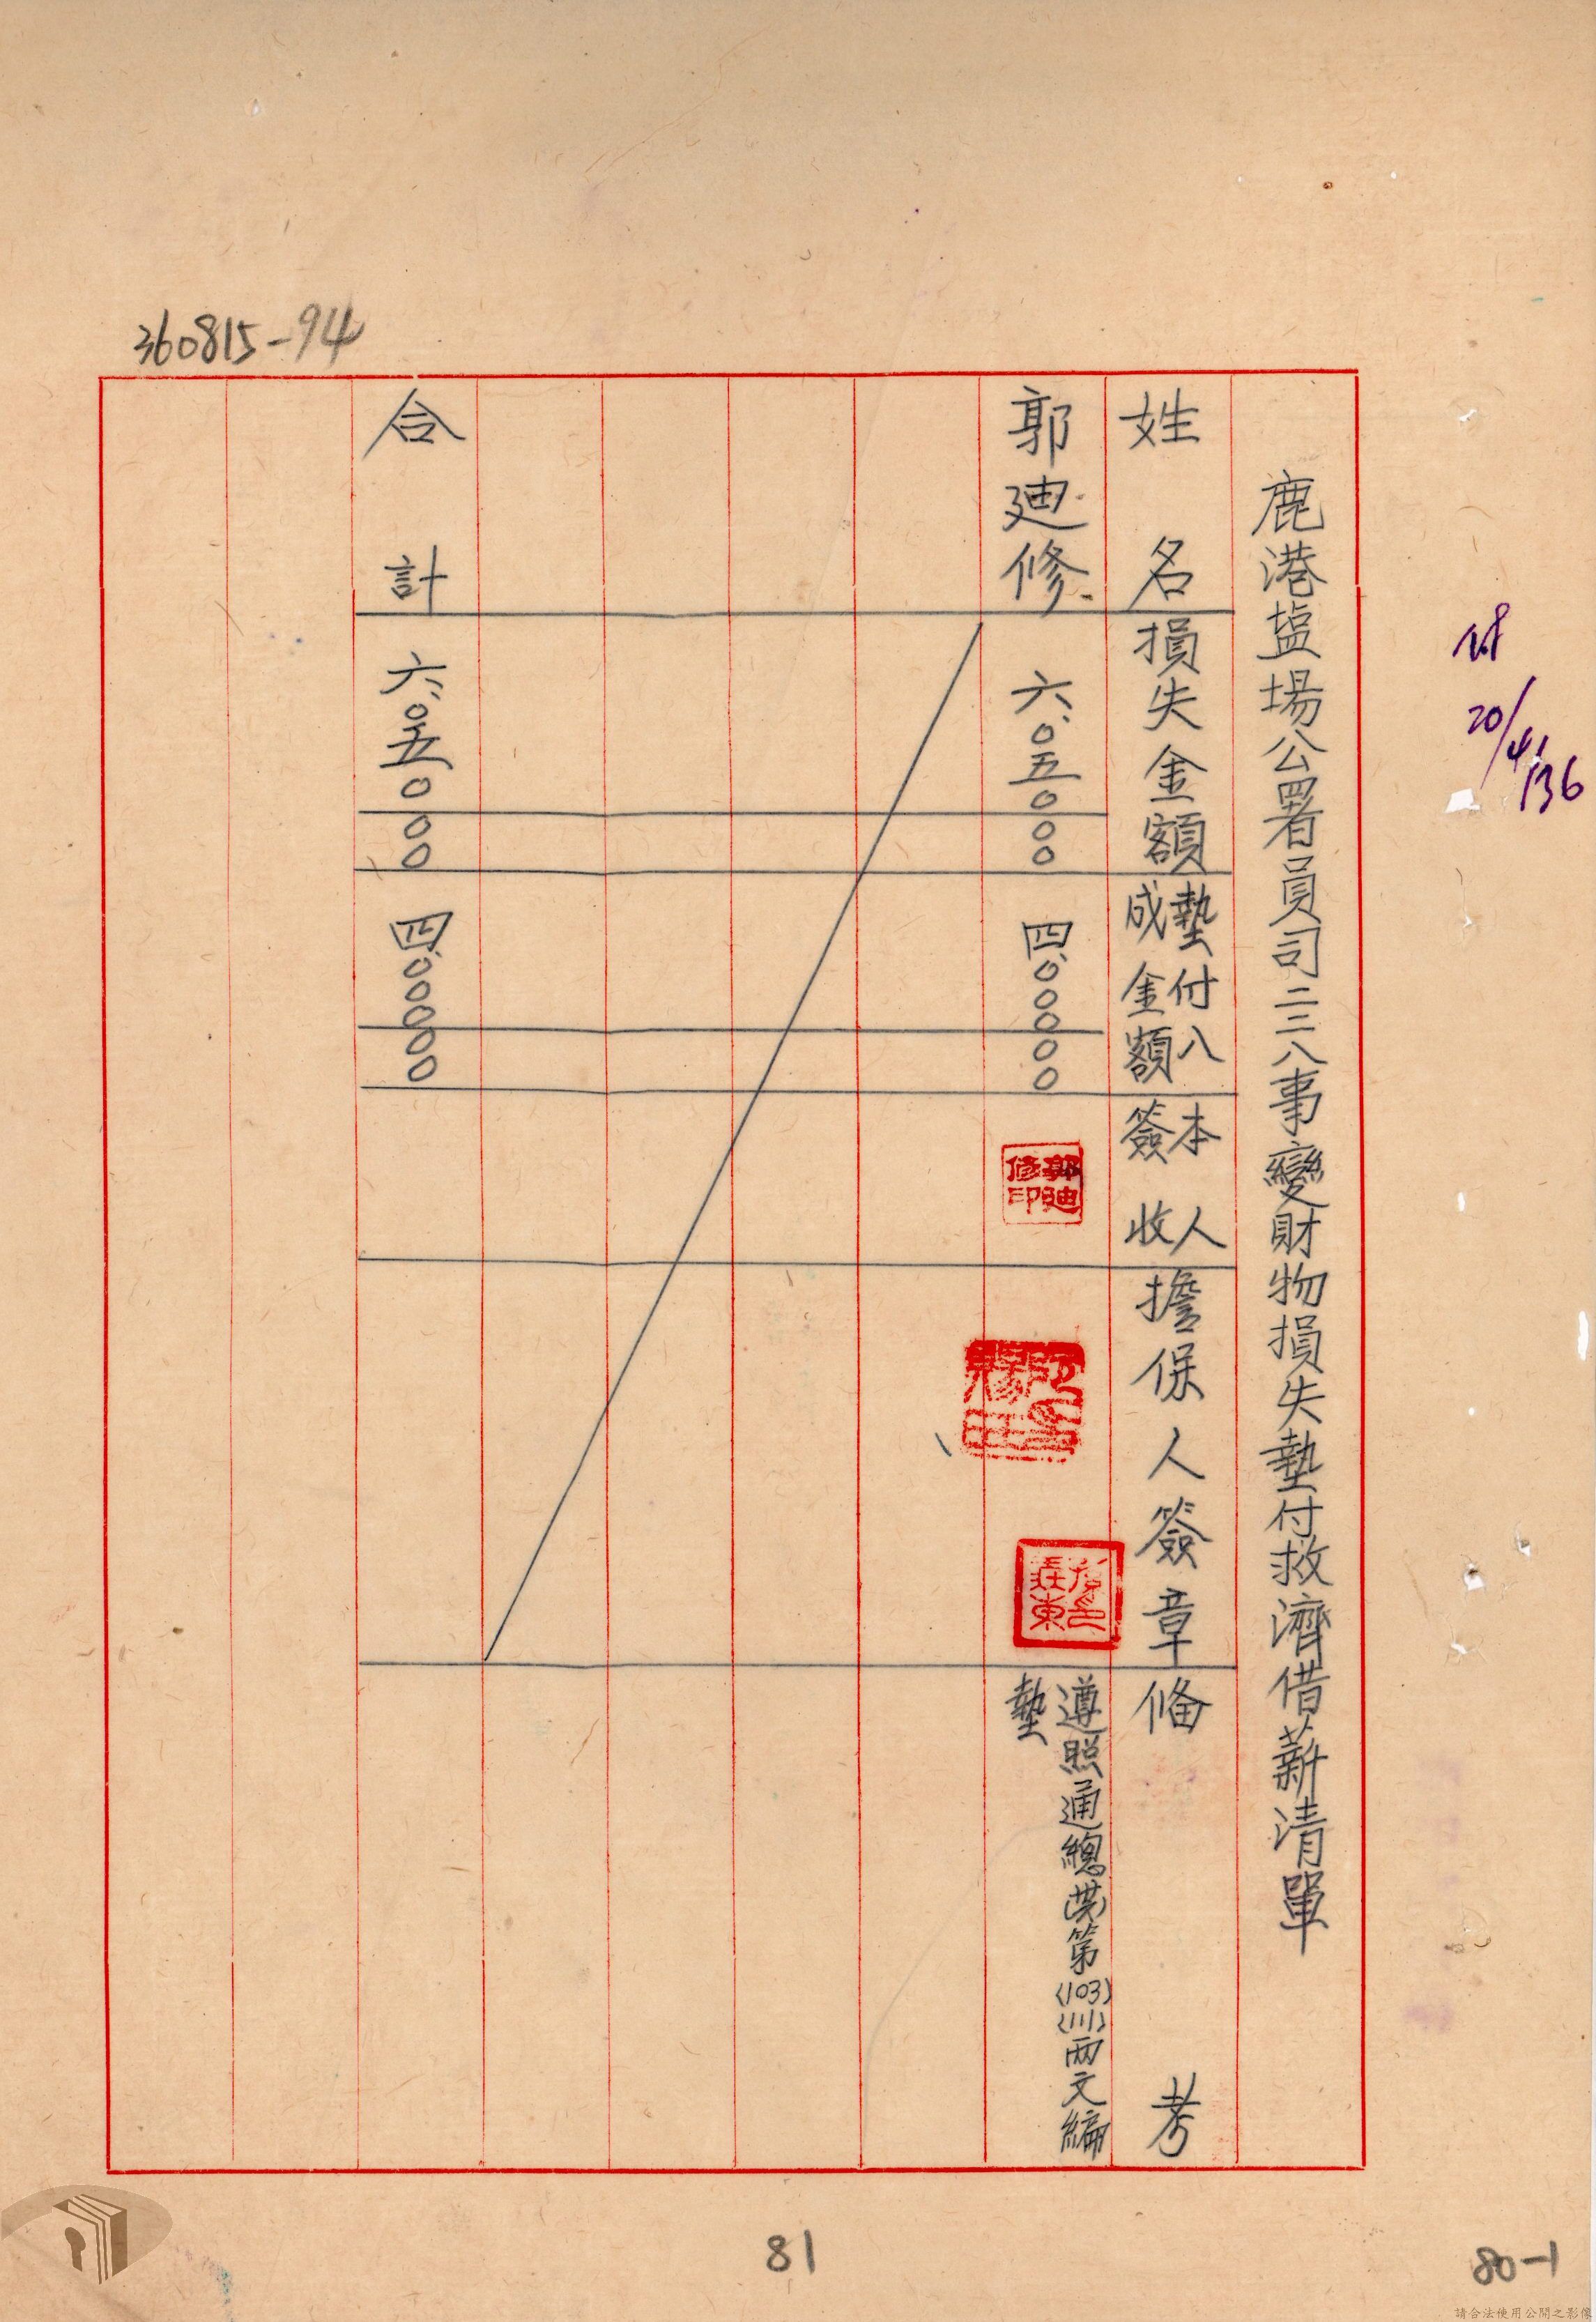 鹿港塩場公署員司二二八事變財物損失墊付救濟借薪清單
姓名
損失金額
墊付八
成金額
本人
簽收
擔保人簽章
俻考
郭廸修
六、〇五〇〇〇
四、〇〇〇〇〇
郭廸
修印
遵照通總
第(103)
(111)兩文編
墊
合計
六、〇五〇〇〇
四、〇〇〇〇〇
360815-94
20/4/36
81
80-1
請合法使用公開之影像